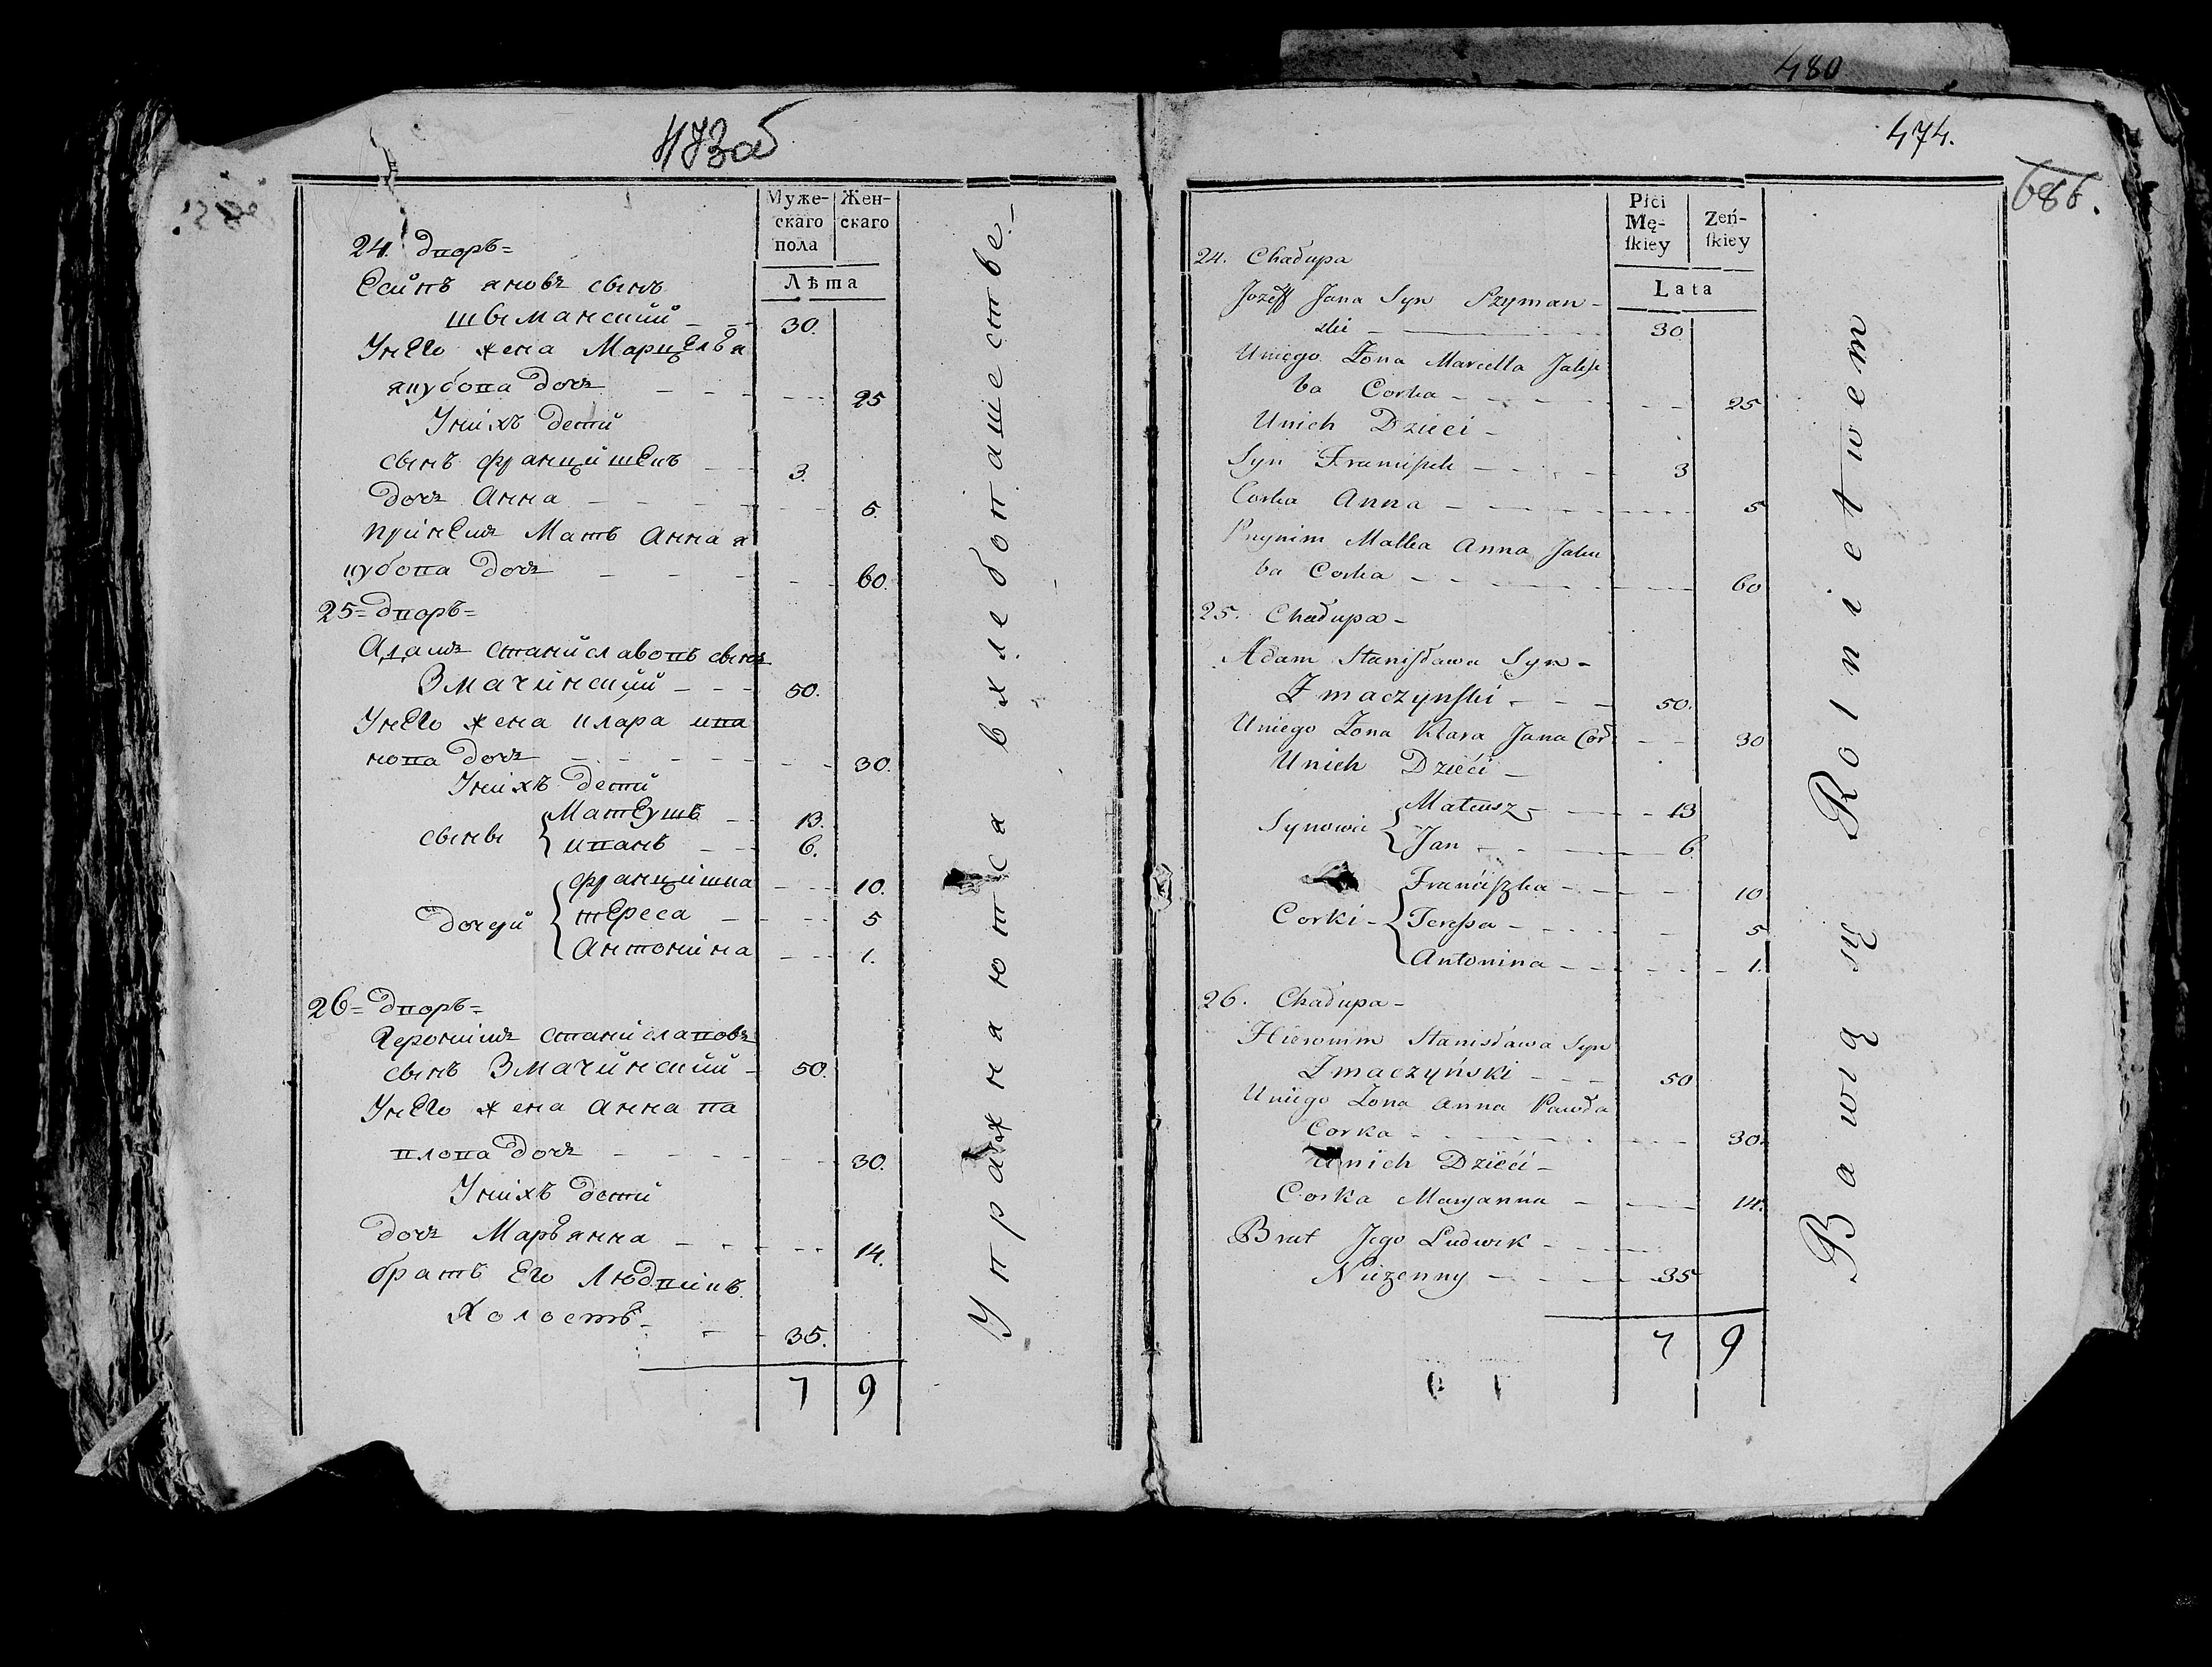 473 об
Муже-
скаго
пола
Жен-
скаго
Лѣта
24. дворъ=
Есипъ яновъ сынъ
шыманский - - 30.
Унего жена Марцелья
якубова дочь - - - 25
Унихъ дети
сынъ францишекъ - - 3.
дочь Анна - - - 5.
принемъ Мать Анна я
кубова дочь - - - 60.
25= дворъ=
Адамъ станиславовъ сынъ
Змачинский - - - 50.
Унего жена клара ива
нова дочь - - - 30.
Унихъ дети
сыны { Матеушъ - 13.
иванъ - - 6.
дочери { францишка - - 10.
тереса - - - 5
Антонина - - - 1.
26= дворъ=
Яеронимъ станиславовъ
сынъ Змачинский - 50.
Унего жена анна па
влова дочь - - - 30.
Унихъ дети
дочь Марьянна - - - 14.
братъ Его Людвикъ
Холостъ - - - 35.
7 9
Упражняются в хлебопашестве
480
474.
686.
Płci
Mę-
ſkiey
Zeń-
ſkiey
Lata
24. Chałupa
Jozeff Jana Syn Szyman-
ski - 30
Uniego Zona Marcella Jaku
ba Corka - - - 25
Unich Dzieci -
Syn Franciſzek - - - 3
Corka Anna - - - 5
Przynim Matka Anna Jaku
ba Corka - - - 60
25. Chałupa -
Adam Staniſława Syn -
Zmaczynſki - - - 50.
Uniego Zona Klara Jana Cor. - - 30
Unich Dzieći -
Synowie { Mateusz - - 13
Jan - - - 6
Corki - { Franćiſzka - - - 10
Tereſsa - - - 5
Antonina - - - 1.
26. Chałupa -
Hieronim Stanisława Syn
Zmaczyński - - - 50
Uniego Zona Anna Pawła
Corka - - - 30.
Unich Dzieći -
Corka Maryanna - - - 14.
Brat Jego Ludwik - - -
Nieżenny - - - 35
7 9
Bawią się Rolnictwem